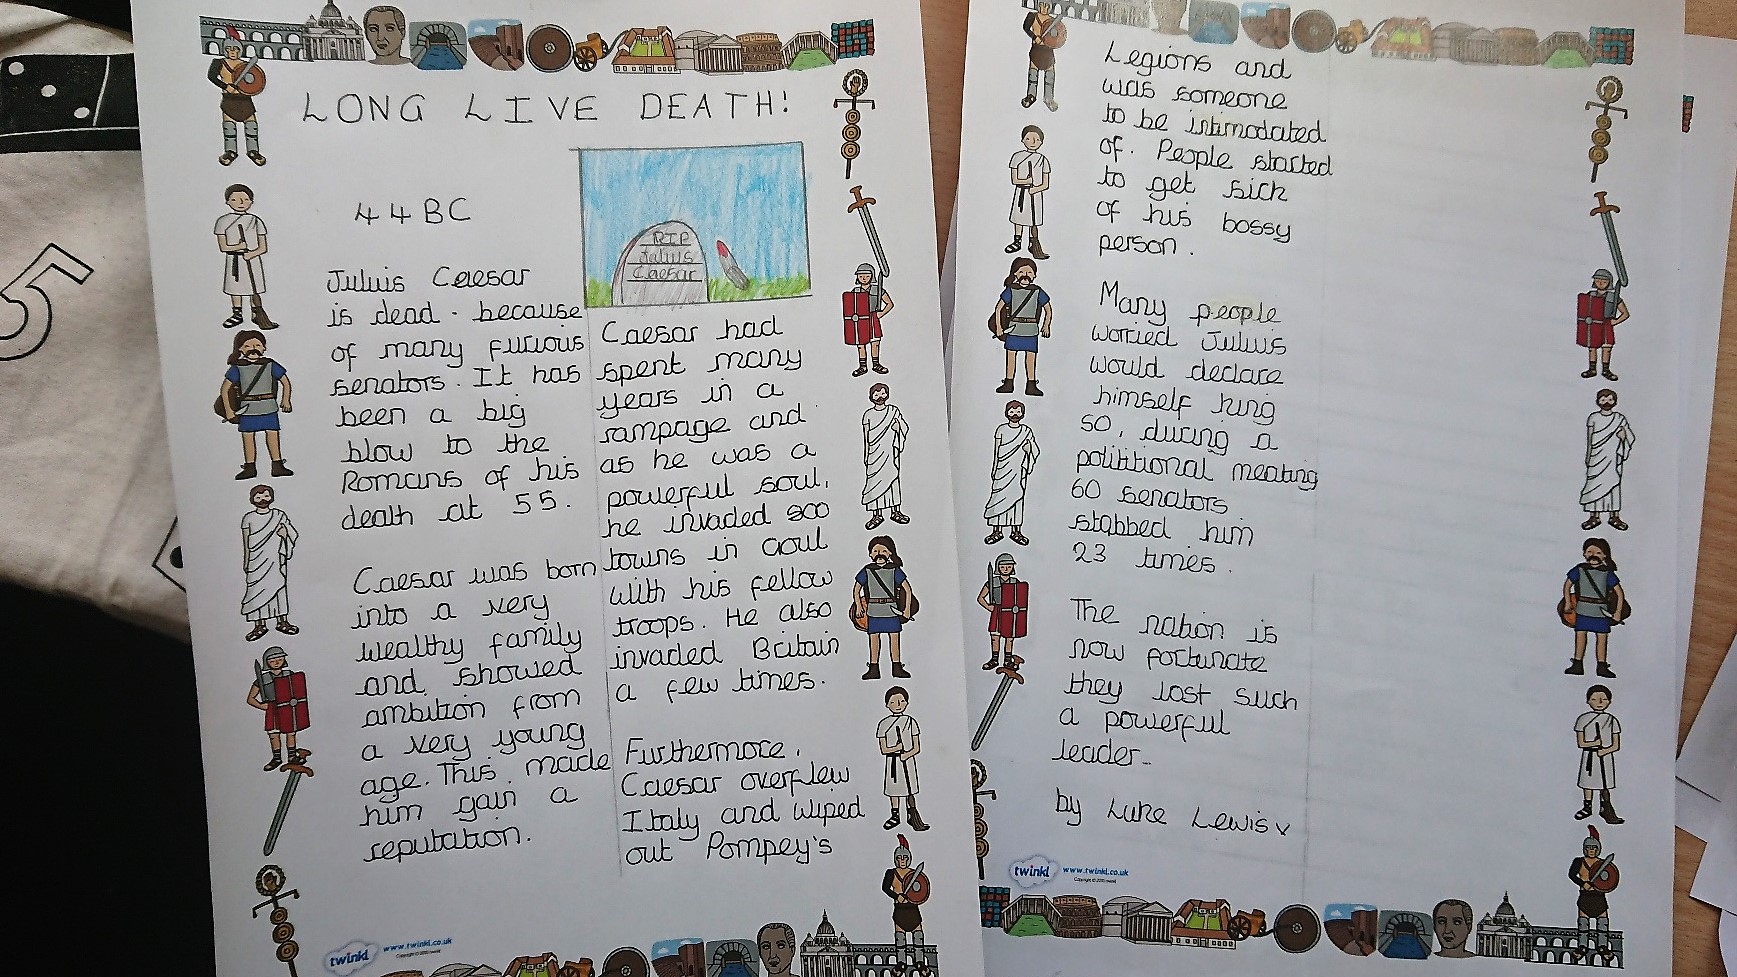 LONG LIVE DEATH!
44BC
RIP
Julius
Caesar
Juluis Caesar
is dead. because
of many furious
senators. It has
been a big
blow to the
Romans of his
death at 55.
Caesar was born
into a very
wealthy family
and showed
ambition from
a very young
age. This made
him gain a
reputation.
Caesar had
spent many
years in a
rampage and
as he was a
powerful soul,
he invaded 800
towns in Gaul
with his fellow
troops. He also
invaded Britain
a few times.
Furthermore,
Caesar overflew
Italy and wiped
out Pompey's
twinkl www.twinkl.co.uk
Legions and
was someone
to be intimodated
of. People started
to get sick
of his bossy
person.
Many people
worried Juluis
would declare
himself king
so, during a
polititional meating
60 senators
stabbed him
23 times.
The nation is
now fortunate
they lost such
a powerful
leader..
by Luke Lewis
twinkl www.twinkl.co.uk
5